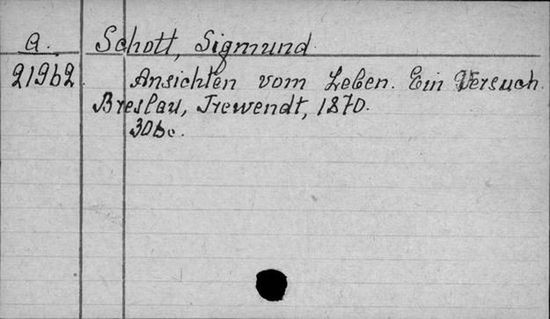 a. Schott, Sigmund
21962 Ansichten vom Leben. Ein Versuch.
Breslau, Trewendt, 1870.
30 bc.